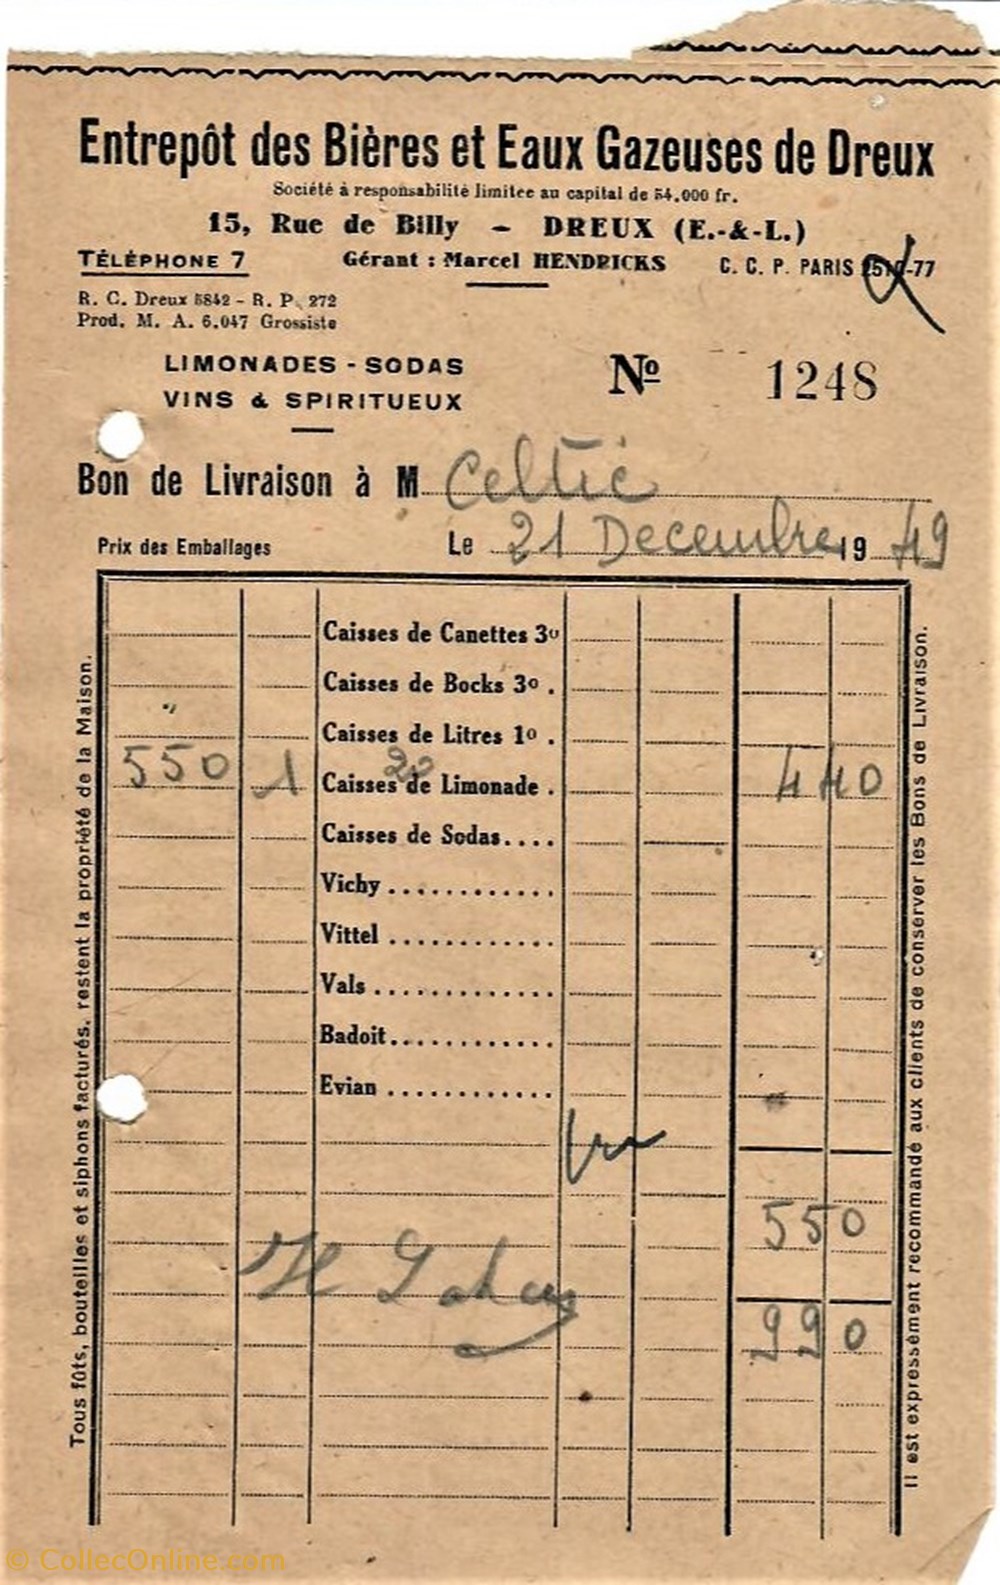 Entrepôt des Bières et Eaux Gazeuses de Dreux
Société à responsabilité limitee au capital de 54.000 fr.
15, Rue de Billy - DREUX (E.-&-L.)
TÉLÉPHONE 7
Gérant : Marcel HENDRICKS
C. C. P. PARIS -77
R. C. Dreux 5842 - R. P. 272
Prod. M. A. 6.047 Grossiste
LIMONADES - SODAS
VINS & SPIRITUEUX
Nº 1248
Bon de Livraison à M Celtic
Prix des Emballages
Le 21 Decembre 19 49
Caisses de Canettes 3º
Caisses de Bocks 3º .
Caisses de Litres 1º .
20
550 1 Caisses de Limonade . 440
Caisses de Sodas....
Vichy ............
Vittel ............
Vals .............
Badoit............
Evian ............
550
990
Tous fûts, bouteilles et siphons facturés, restent la propriété de la Maison.
Il est expressément recommandé aux clients de conserver les Bons de Livraison.
© CollecOnline.com